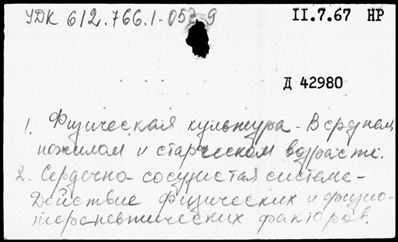 УДК 612.766.1-053.9
II.7.67 НР
Д 42980
1. Физическая культура - В среднем,
пожилом и старческом возрасте.
2. Сердечно-сосудистая система -
Действие физических и физио-
терапевтических факторов.